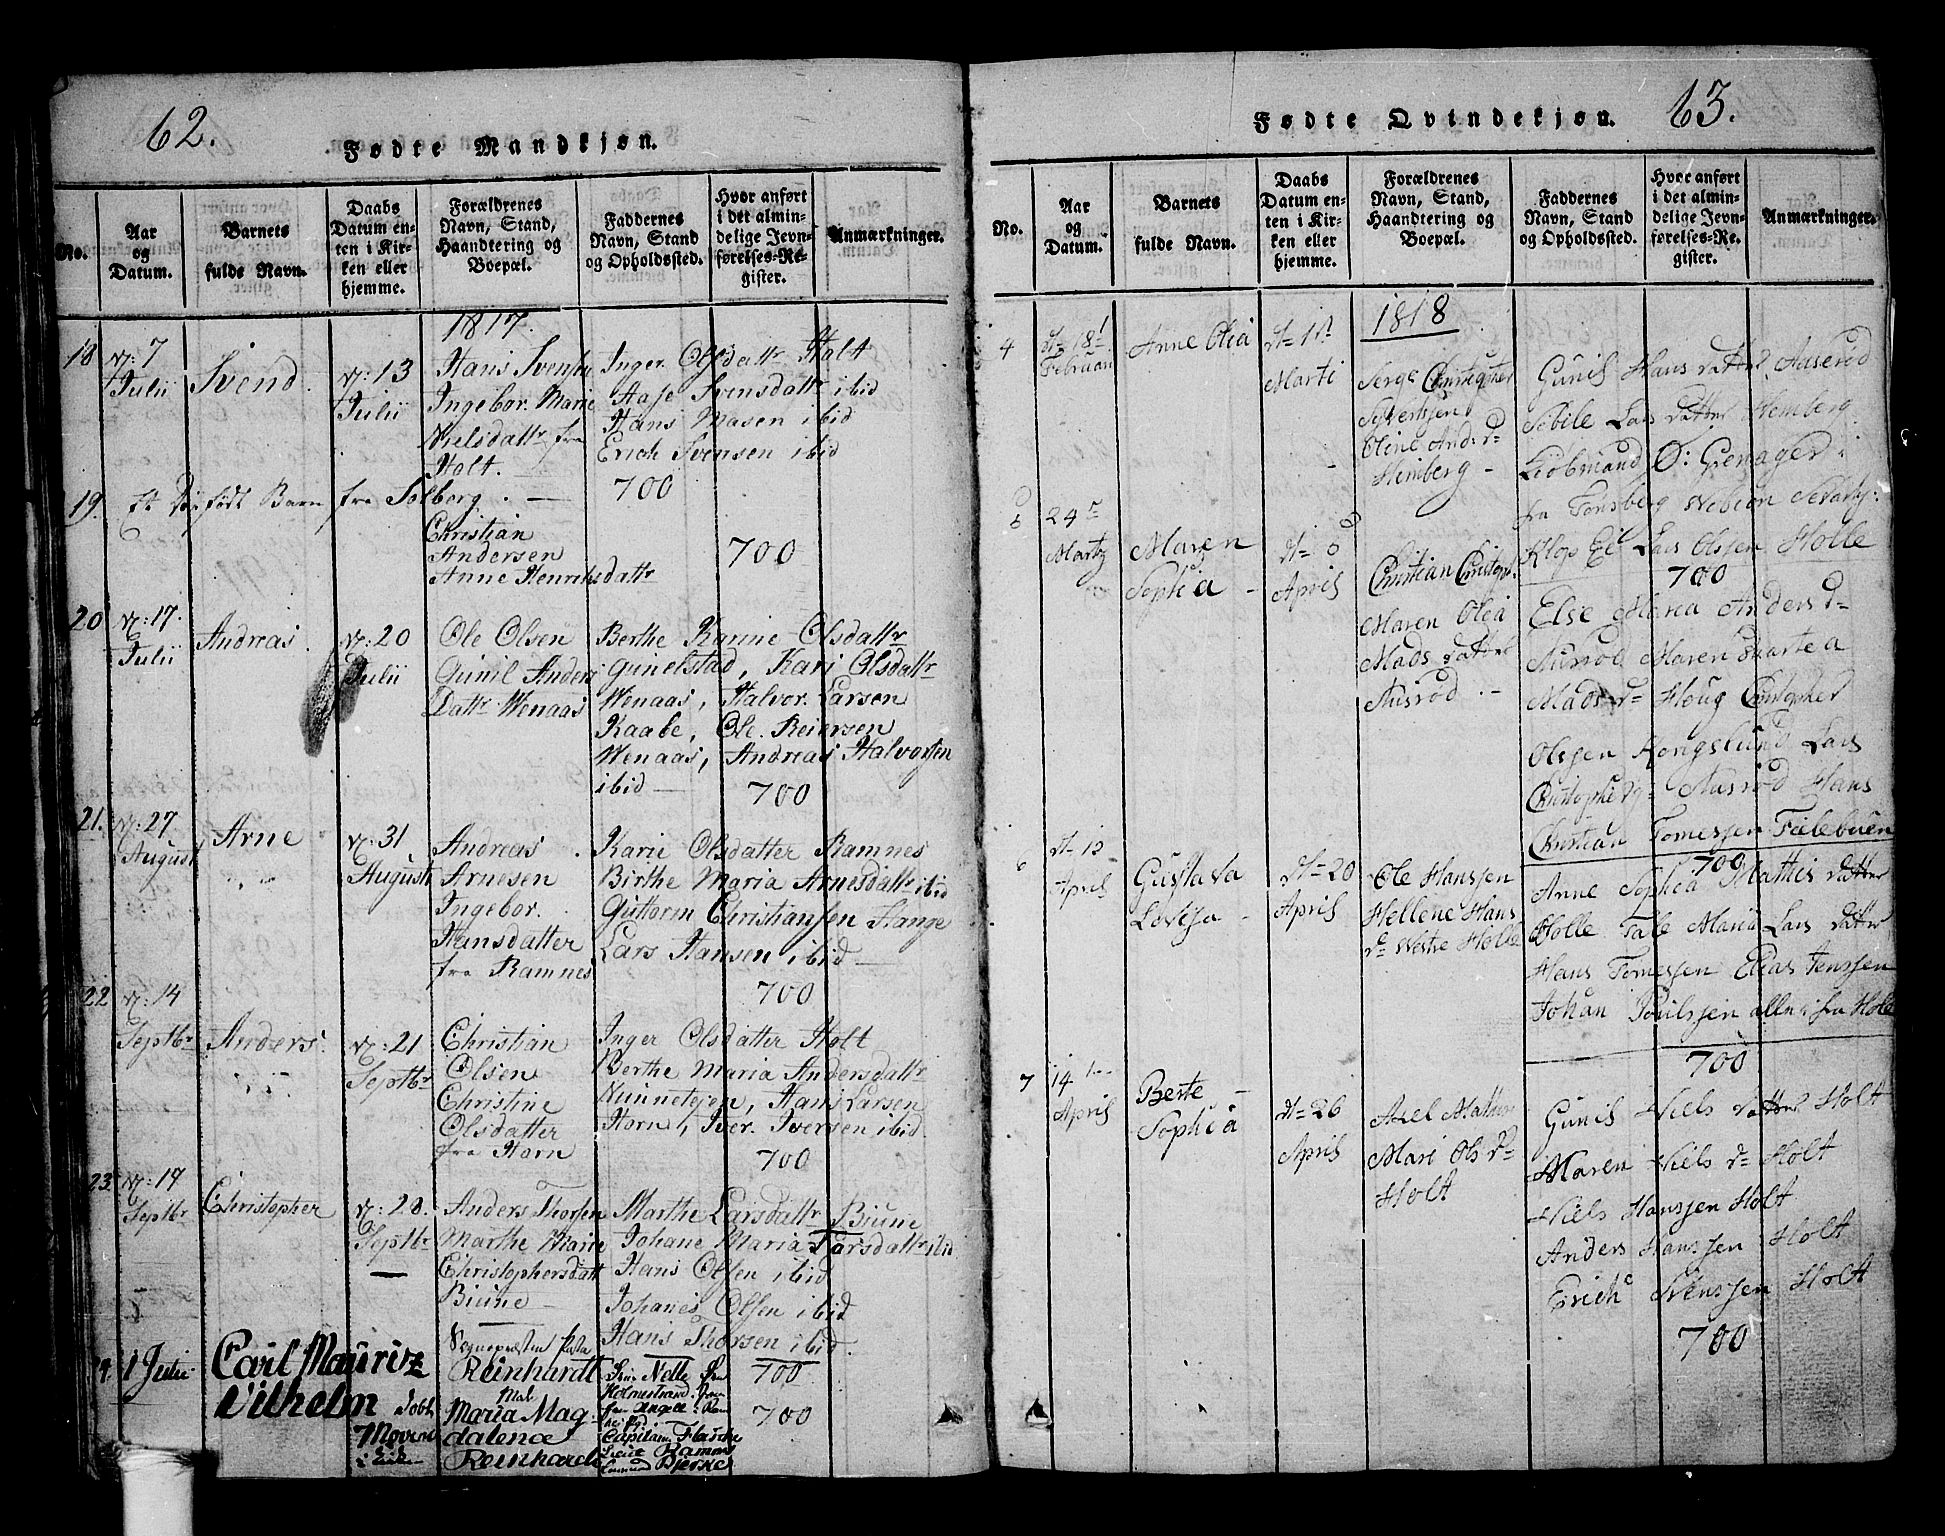 62.
Fødte Mandkjøn.
No.
Aar og Datum.
Barnets fulde Navn.
Daabs Datum enten i Kirken eller hjemme.
Forældrenes Navn, Stand, Haandtering og Boepæl.
Faddernes Navn, Stand og Opholdssted.
Hvor anført i det almindelige Jevnførelses-Register.
Anmærkninger.
1817.
18 7 Julii
Svend.
13 Julii
Hans Svens
Ingebor. Marie
Nielsdattr fra
Holt.
Inger Olsdattr Holt
Aase Svensdattr ibid
Hans Masen ibid
Erich Svensen ibid
700
19. Et født Barn fra Solberg.
Christian
Andersen
Anne Henriksdattr
700
20 17. Julii
Andreas.
20 Julii
Ole Olsen
Gunil Anders
Dattr Wenaas
Berthe Karine Olsdattr
Gunelstad, Kari Olsdattr
Wenaas, Halvor Larsen
Kaabe, Ole Reiersen
Wenaas, Andreas Halvorsen
ibid
700
21. 27 August
Arne
31 August
Andreas
Arnesen
Ingebor.
Hansdatter
fra Ramnes
Karie Olsdatter Ramnes
Birthe Maria Arnesdattr ibid
Guttorm Christiansen Hange
Lars Hansen ibid
700
22 14 Septbr
Anders.
21 Septbr
Christian
Olsen
Christine
Olsdatter
fra Horn
Inger Olsdatter Holt
Berthe Maria Andersdattr
Hans Larsen
Horn, Iver Iversen ibid.
700
23. 19 Septbr
Christopher
28. Septbr
Anders Thorsen
Marthe Marie
Christophersdatt
Biune
Marthe Larsdattr Biune
Johane Maria Larsdattr ibid
Hans Olsen ibid
Johanes Olsen ibid
Hans Thorsen ibid.
700
1 Julii
Carl Mauritz
Vilhelm
Reinhardt
Maria Mag-
dalene
Reinhardt
Holmestrand
Capitain
Bjerke
700
63.
Fødte Qvindekjøn.
No.
Aar og Datum.
Barnets fulde Navn.
Daabs Datum enten i Kirken eller hjemme.
Forældrenes Navn, Stand, Haandtering og Boepæl.
Faddernes Navn, Stand og Opholdssted.
Hvor anført i det almindelige Jevnførelses-Register.
Anmærkninger.
1818
4 18 Februari
Anne Olia
1 Marti
Christopher
Sivertsen
Oline And. d
Hemberg
Gunil Hans datter Aaserod
Sibile Lars datter Hemberg
fra Tønsberg
Lars Olssen Holle
700
24 Marty
Maren
Sophia
April
Christian Christoph.
Maren Olia
Mads datter
Ausrod
Else Maria Anders d
Ausrod Maren
Mads d Houg Christopher
Olssen Kongslund Lars
Ausrod Hans
Christian Tomessen
700
6 12 April
Gustava
Lovisa
20 April
Ole Hanssen
Hellene Hans
d Westre Holle
Anne Sophia Mathis datter
Holle Tale Maria Lars datter
Hans Tomessen Elias Jenssen
Johan Poulssen alle fra Holle
700
7 14 April
Berte
Sophia
26 April
Axel
Mari Ols d
Holt
Gunil Niels datter Holt
Maren Niels d Holt
Niels Hanssen Holt
Anders Hanssen Holt
Erich Svenssen Holt
700